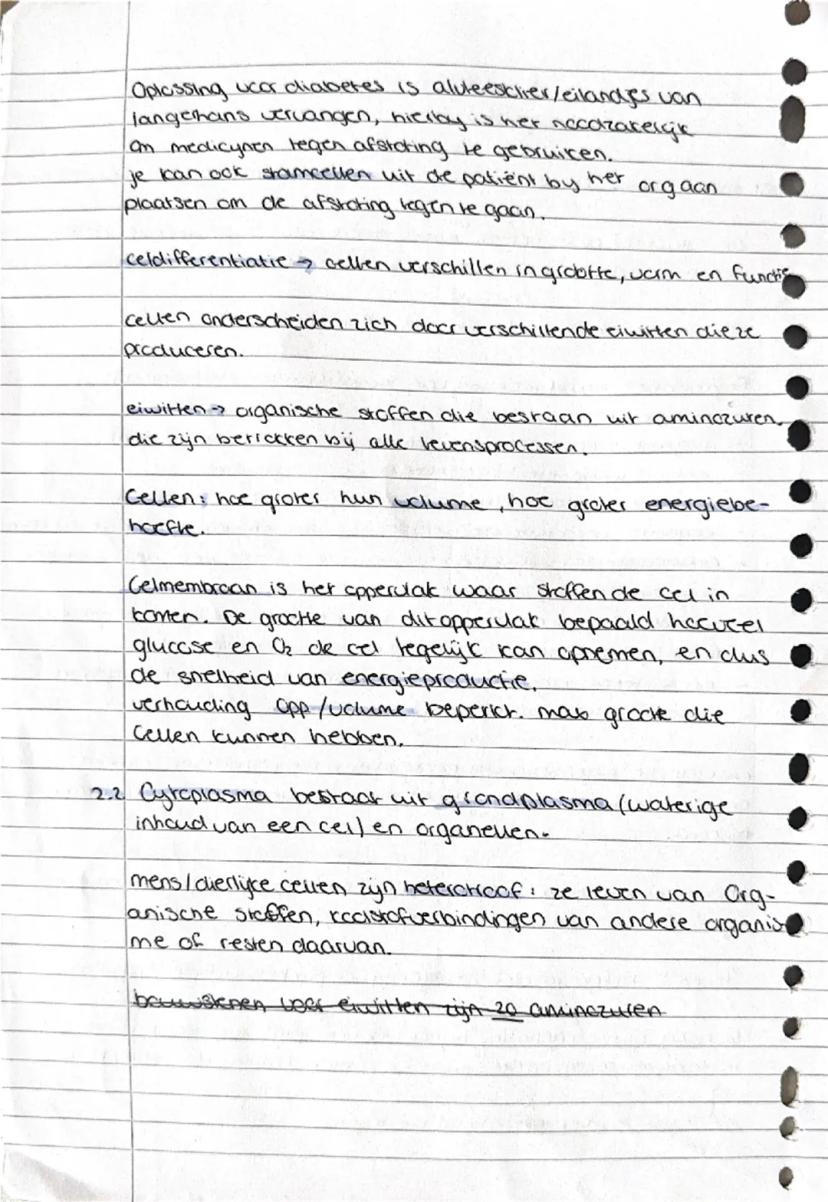 Oplossing voor diabetes is alvleesklier/eilandjes van
langerhans vervangen, hierby is het noodzakelijk
om medicynen tegen afstoting te gebruiken.
je kan ook stamcellen uit de patiënt by het orgaan
plaatsen om de afstoting tegen te gaan.
celdifferentiatie → cellen verschillen in grootte, vorm en functie
cellen onderscheiden zich door verschillende eiwitten die ze
produceren.
eiwitten → organische stoffen die bestaan uit aminozuren,
die zijn betrokken bij alle levensprocessen.
Cellen: hoe groter hun volume, hoe groter energiebe-
hoefte.
Celmembraan is het oppervlak waar stoffen de cel in
komen. De grootte van dit oppervlak bepaald hoeveel
glucose en O₂ de cel tegelijk kan opnemen, en dus
de snelheid van energieproductie.
verhouding opp/volume beperkt max grootte die
Cellen kunnen hebben.
2.2 Cytoplasma bestaat uit grondplasma (waterige
inhoud van een cel) en organellen.
mens/dierlijke cellen zijn heterotroof: ze leven van Org-
anische stoffen, koolstofverbindingen van andere organis
me of resten daarvan.
bouwstenen voor eiwitten zijn 20 aminozuren